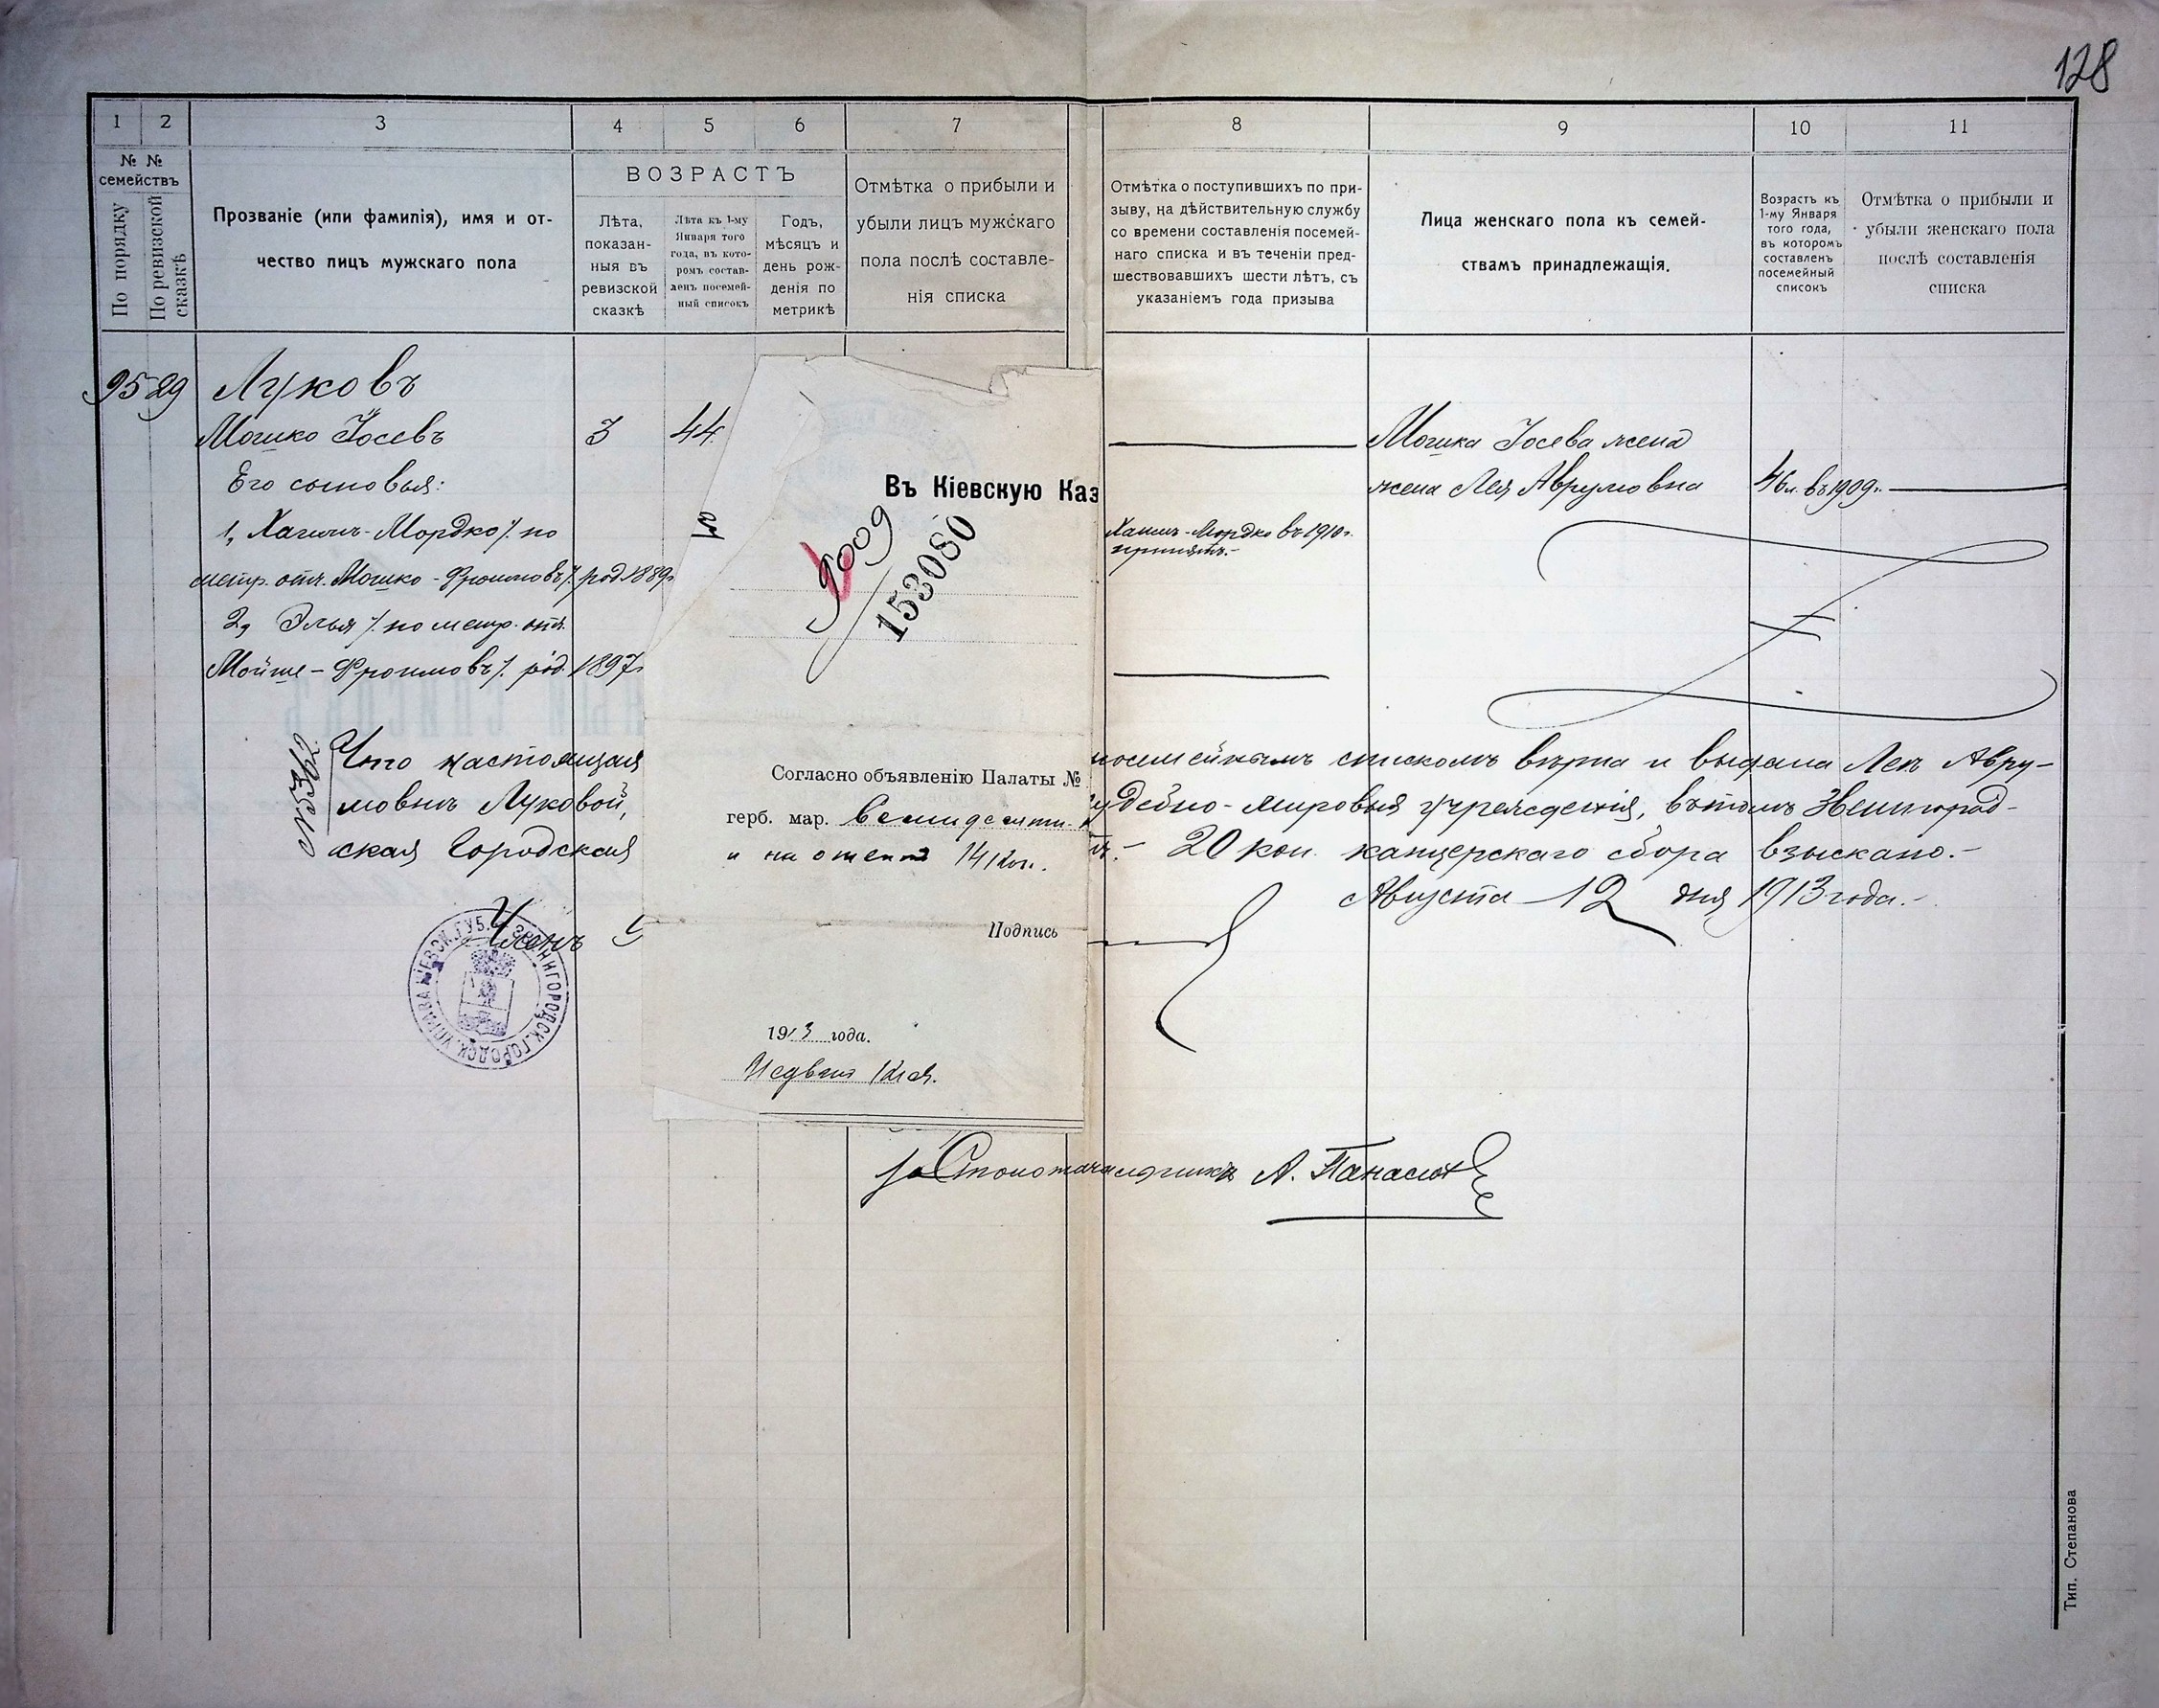 128
1 2 3 4 5 6 7 8 9 10 11
№ № семействъ
По порядку
По ревизской сказкѣ
Прозваніе (или фамилія), имя и от-
чество лицъ мужскаго пола
ВОЗРАСТЪ
Лѣта,
показан-
ныя въ
ревизской
сказкѣ
Лѣта къ 1-му
Января того
года, въ кото-
ромъ состав-
ленъ посемей-
ный списокъ
Годъ,
мѣсяцъ и
день рож-
денія по
метрикѣ
Отмѣтка о прибыли и
убыли лицъ мужскаго
пола послѣ составле-
нія списка
Отмѣтка о поступившихъ по при-
зыву, на дѣйствительную службу
со времени составленія посемей-
наго списка и въ теченіи пред-
шествовавшихъ шести лѣтъ, съ
указаніемъ года призыва
Лица женскаго пола къ семей-
ствамъ принадлежащія.
Возрастъ къ
1-му Января
того года,
въ которомъ
составленъ
посемейный
списокъ
Отмѣтка о прибыли и
убыли женскаго пола
послѣ составленія
списка
95 29 Луковъ
Мошко Іосевъ 3 44
Его сыновья:
1, Хаимъ-Мордко /. по
метр. отч. Мошко-Фроимовъ /. род. 1889г.
2, Элья /. по метр. отч.
Мойше-Фроимовъ /. род. 1897г.
Хаимъ-Мордко въ 1910г.
принятъ.-
Мошка Іосева жена
жена Лея Аврумовна 46л. въ 1909г.
Въ Кіевскую Каз
9009
153080
Согласно объявленію Палаты №
герб. мар. семидесяти
и на отвѣтъ 14 коп.
Подпись
1913 года.
№ 5362
Что настоящая посемейнымъ спискомъ вѣрна и выдана Леѣ Авру-
мовнѣ Луковой, судебно-мировыя учрежденія, въ томъ Звенигород-
ская Городская 20 коп. канцерскаго сбора взыскано.-
Августа 12 дня 1913 года.-
Членъ
КІЕВСК. ГУБ. ЗВЕНИГОРОДСК. ГОРОДСК. УПРАВА
За Столоначальника А. Панасюк
Тип. Степанова